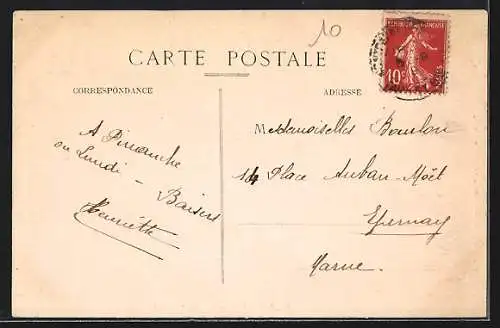 10
RÉPUBLIQUE FRANÇAISE
10c
CARTE POSTALE
CORRESPONDANCE
ADRESSE
A Dimanche
ou Lundi –
Baisers
Henriette
Mesdemoiselles Boulon
14 Place Auban-Moët
Epernay
Marne.